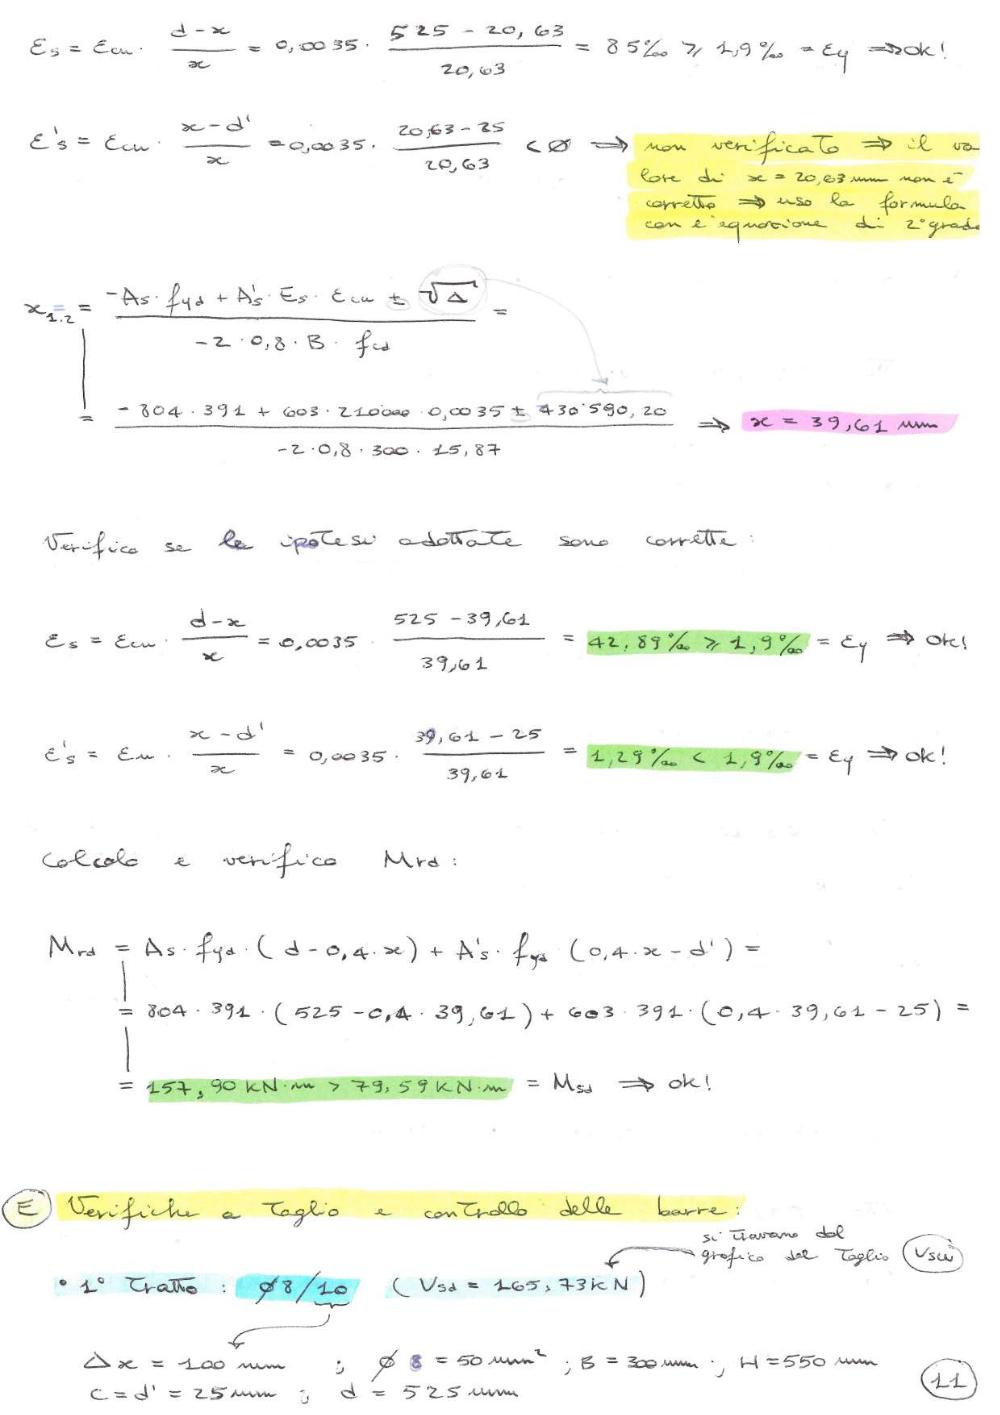 εs = εcu · (d-x)/x = 0,0035 · (525 - 20,63)/20,63 = 85‰ ≥ 1,9‰ = εy ⇒ ok!
ε's = εcu · (x-d')/x = 0,0035 · (20,63-25)/20,63 < ∅ ⇒ non verificato ⇒ il va
lore di x = 20,63 mm non è
corretto ⇒ uso la formula
con l'equazione di 2° grado
x1,2 = (-As · fyd + A's · Es · εcu ± √Δ)/(-2 · 0,8 · B · fcd) =
= (-804 · 391 + 603 · 210000 · 0,0035 ± 430'590,20)/(-2 · 0,8 · 300 · 15,87) ⇒ x = 39,61 mm
Verifico se le ipotesi adottate sono corrette:
εs = εcu · (d-x)/x = 0,0035 · (525 - 39,61)/39,61 = 42,89‰ ≥ 1,9‰ = εy ⇒ ok!
ε's = εcu · (x-d')/x = 0,0035 · (39,61 - 25)/39,61 = 1,29‰ < 1,9‰ = εy ⇒ ok!
Calcolo e verifico Mrd:
Mrd = As · fyd · (d-0,4·x) + A's · fyd (0,4·x-d') =
= 804 · 391 · (525 - 0,4 · 39,61) + 603 · 391 · (0,4 · 39,61 - 25) =
= 157,90 kN·m > 79,59 kN·m = Msd ⇒ ok!
E Verifiche a Taglio e controllo delle barre:
si trovano dal
grafico del Taglio VSLU
• 1° Tratto: ∅8/10 (Vsd = 165,73 kN)
Δx = 100 mm ; ∅ 8 = 50 mm² ; B = 300 mm ; H = 550 mm
c = d' = 25 mm ; d = 525 mm
11